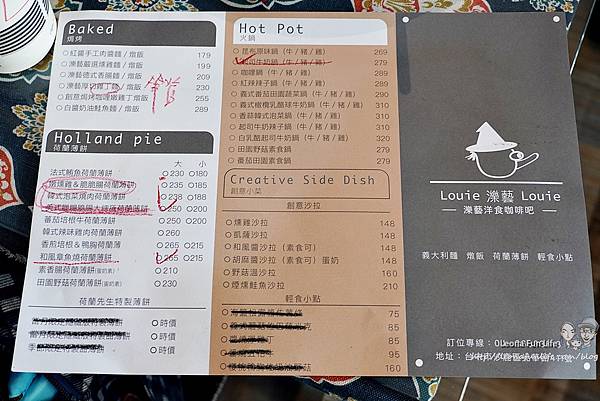 Baked
焗烤
紅醬手工肉醬麵 / 燉飯 179
濼藝嚴選燻雞麵 / 燉飯 199
濼藝德式香腸麵 / 燉飯 209
濼藝厚切雞丁麵 / 燉飯 230
創意焗烤咖哩嫩雞丁燉飯 255
白醬奶油鮭魚麵 / 燉飯 289
Holland pie
荷蘭薄餅
大 小
法式鮪魚荷蘭薄餅 230 180
燉燻雞&脆脆腸荷蘭薄餅 235 185
韓式泡菜燒肉荷蘭薄餅 238 188
250 200
蕃茄培根牛荷蘭薄餅 245 195
韓式辣味雞肉荷蘭薄餅 260
香煎培根&鴨胸荷蘭薄 265 215
和風章魚燒荷蘭薄餅 265 215
素香腸荷蘭薄餅(蛋奶素) 210
田園野菇荷蘭薄餅(蛋奶素) 230
荷蘭先生特製薄餅
時價
時價
時價
Hot Pot
火鍋
昆布原味鍋 (牛 / 豬 / 雞) 269
起司牛奶鍋 (牛 / 豬 / 雞) 279
咖哩鍋 (牛 / 豬 / 雞) 289
紅辣辣子鍋 (牛 / 豬 / 雞) 289
義式番茄田園蔬菜鍋 (牛 / 豬 / 雞) 310
義式橄欖乳酪球牛奶鍋 (牛 / 豬 / 雞) 310
香蒜韓式泡菜鍋 (牛 / 豬 / 雞) 310
起司牛奶辣子鍋 (牛 / 豬 / 雞) 310
白乳酪起司牛奶鍋 (牛 / 豬 / 雞) 320
田園野菇素食鍋 279
番茄田園素食鍋 279
Creative Side Dish
創意小菜
創意沙拉
燻雞沙拉 148
凱薩沙拉 148
和風醬沙拉 (素食可) 148
胡麻醬沙拉 (素食可) 蛋奶 148
野菇溫沙拉 160
煙燻鮭魚沙拉 210
輕食小點
75
95
85
95
160
Louie 濼藝 Louie
濼藝洋食咖啡吧
義大利麵 燉飯 荷蘭薄餅 輕食小點
訂位專線:
地址:台中市